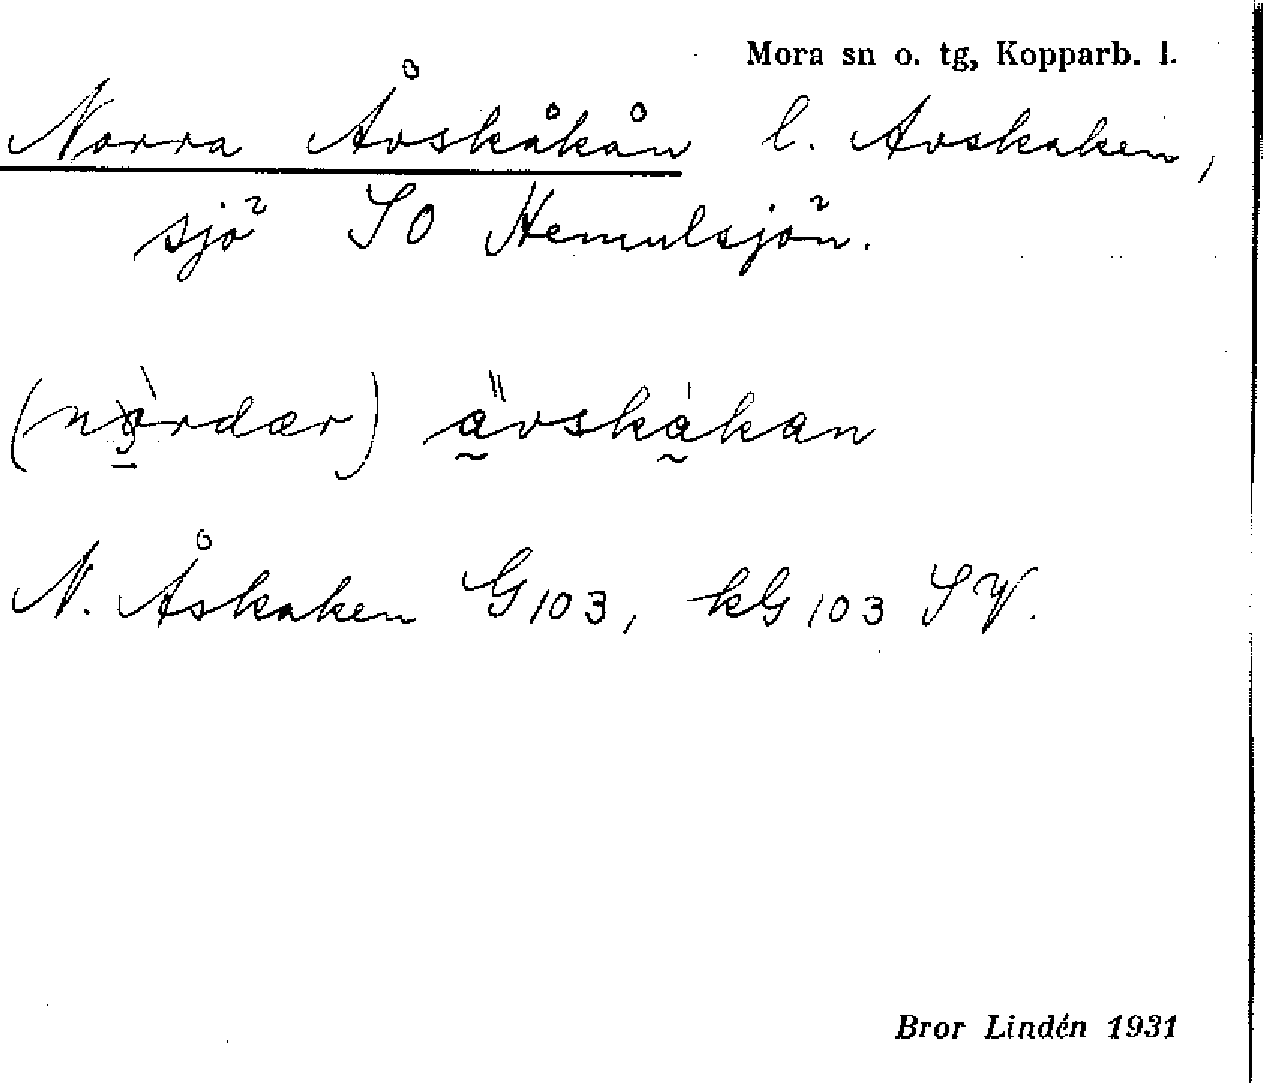 Mora sn o. tg, Kopparb. l.
Norra Åvskåkån l. Avskaken,
sjö SO Hemulsjön.
(nòrdær) a̰̋vska̰̍kan
N. Åskaken G103, kG103 SV.
Bror Lindén 1931